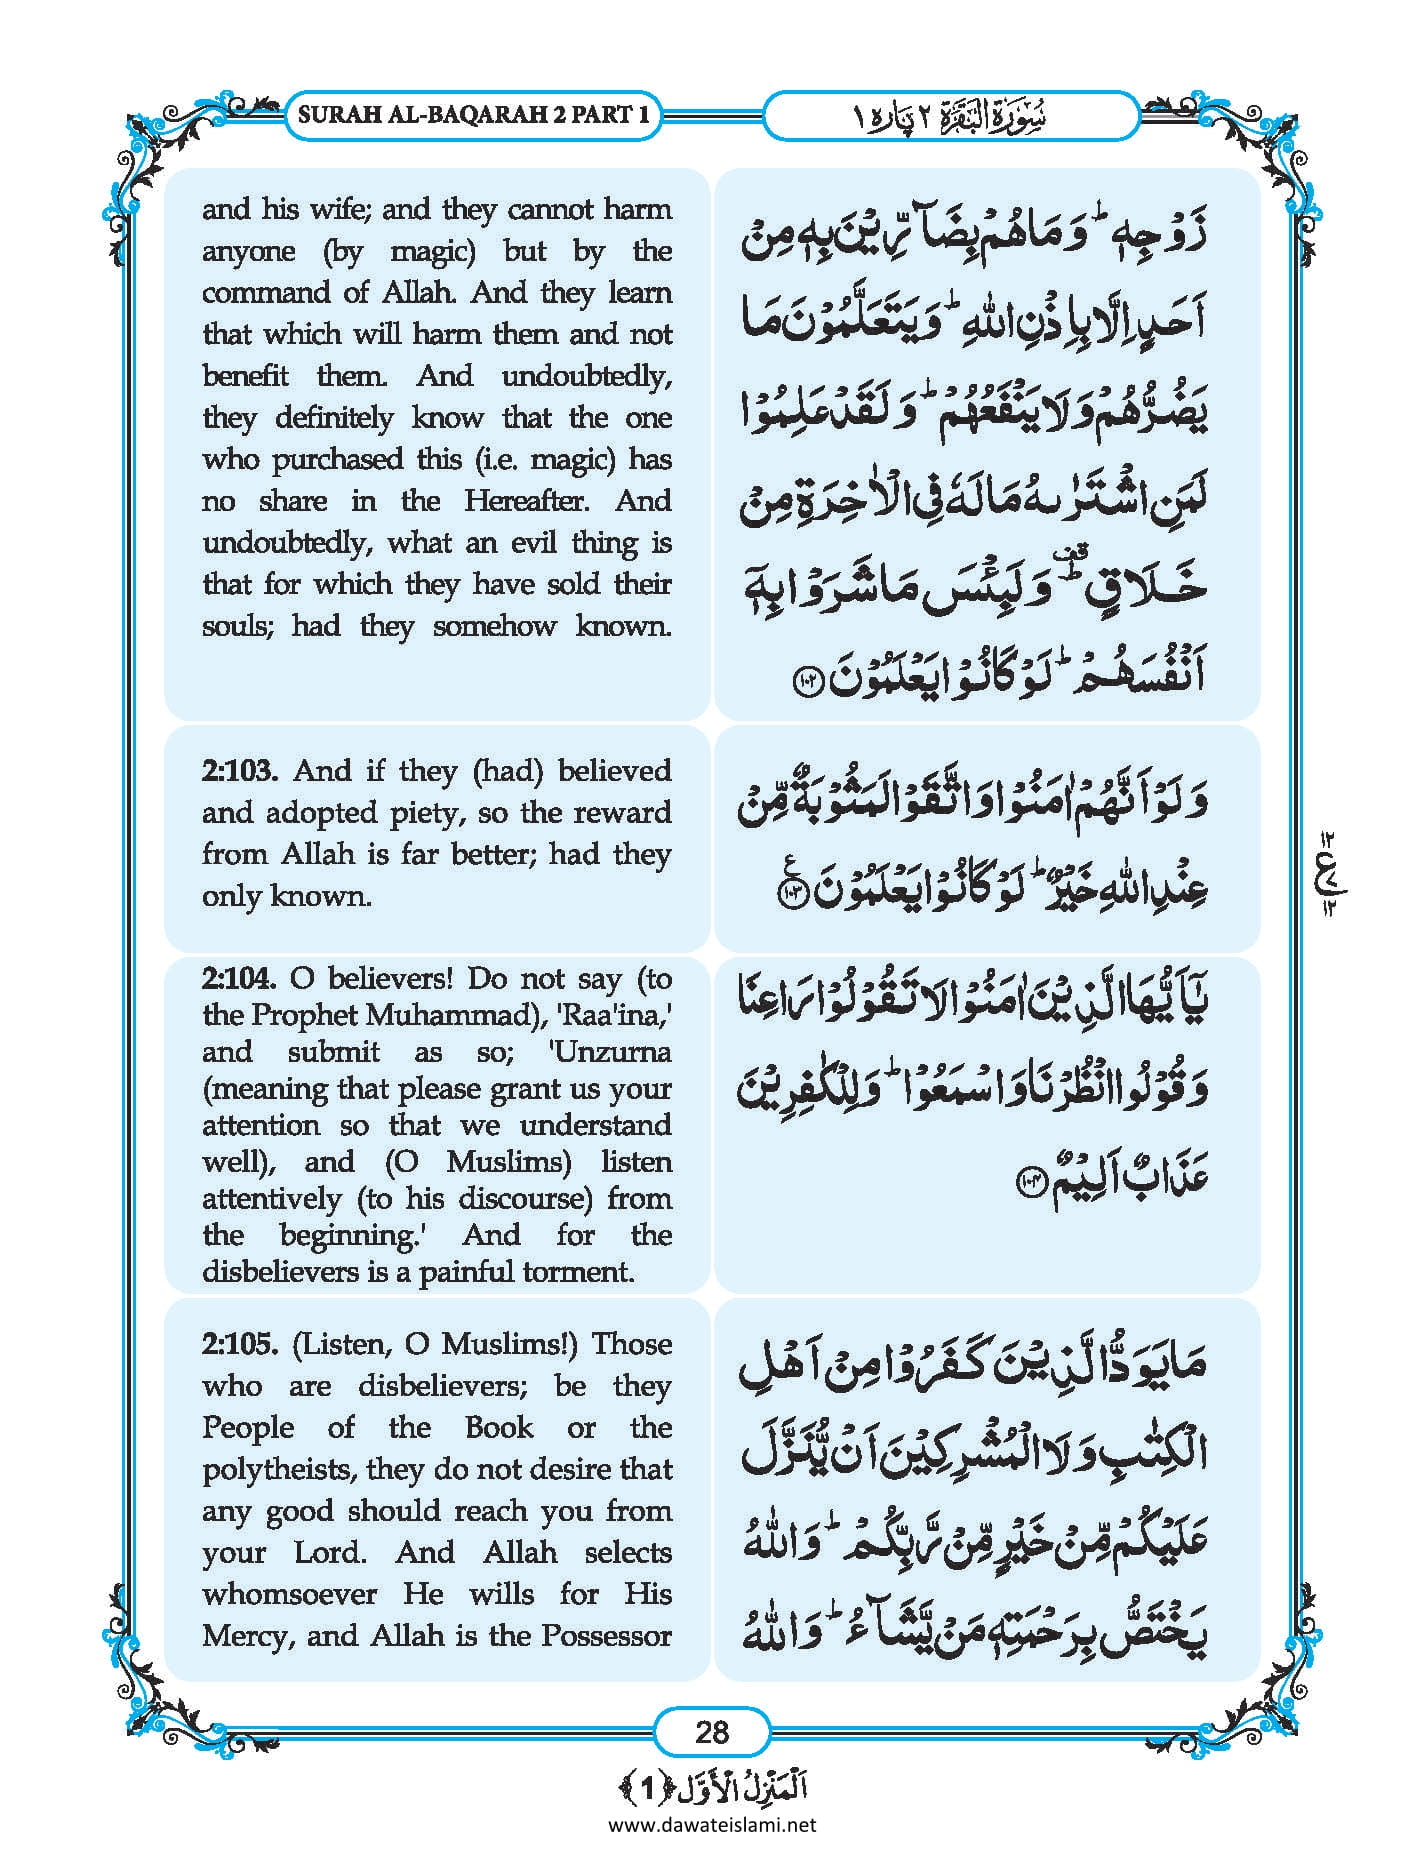 SURAH AL-BAQARAH 2 PART 1
سُوْرَةُ الْبَقَرَة ٢ پَارہ ١
and his wife; and they cannot harm
anyone (by magic) but by the
command of Allah. And they learn
that which will harm them and not
benefit them. And undoubtedly,
they definitely know that the one
who purchased this (i.e. magic) has
no share in the Hereafter. And
undoubtedly, what an evil thing is
that for which they have sold their
souls; had they somehow known.
زَوْجِهٖ ؕ وَمَا هُمْ بِضَآرِّيْنَ بِهٖ مِنْ
اَحَدٍ اِلَّا بِاِذْنِ اللهِ ؕ وَيَتَعَلَّمُوْنَ مَا
يَضُرُّهُمْ وَلَا يَنْفَعُهُمْ ؕ وَلَقَدْ عَلِمُوْا
لَمَنِ اشْتَرٰىهُ مَا لَهٗ فِي الْاٰخِرَةِ مِنْ
خَلَاقٍ ؕ قف وَلَبِئْسَ مَا شَرَوْا بِهٖۤ
اَنْفُسَهُمْ ؕ لَوْ كَانُوْا يَعْلَمُوْنَ ﴿١٠٢﴾
2:103. And if they (had) believed
and adopted piety, so the reward
from Allah is far better; had they
only known.
وَلَوْ اَنَّهُمْ اٰمَنُوْا وَاتَّقَوْا لَمَثُوْبَةٌ مِّنْ
عِنْدِ اللهِ خَيْرٌ ؕ لَوْ كَانُوْا يَعْلَمُوْنَ ﴿١٠٣﴾ ع
١٢
ع
١٢
2:104. O believers! Do not say (to
the Prophet Muhammad), 'Raa'ina,'
and submit as so; 'Unzurna
(meaning that please grant us your
attention so that we understand
well), and (O Muslims) listen
attentively (to his discourse) from
the beginning.' And for the
disbelievers is a painful torment.
يٰۤاَيُّهَا الَّذِيْنَ اٰمَنُوْا لَا تَقُوْلُوْا رَاعِنَا
وَقُوْلُوا انْظُرْنَا وَاسْمَعُوْا ؕ وَلِلْكٰفِرِيْنَ
عَذَابٌ اَلِيْمٌ ﴿١٠٤﴾
2:105. (Listen, O Muslims!) Those
who are disbelievers; be they
People of the Book or the
polytheists, they do not desire that
any good should reach you from
your Lord. And Allah selects
whomsoever He wills for His
Mercy, and Allah is the Possessor
مَا يَوَدُّ الَّذِيْنَ كَفَرُوْا مِنْ اَهْلِ
الْكِتٰبِ وَلَا الْمُشْرِكِيْنَ اَنْ يُّنَزَّلَ
عَلَيْكُمْ مِّنْ خَيْرٍ مِّنْ رَّبِّكُمْ ؕ وَاللهُ
يَخْتَصُّ بِرَحْمَتِهٖ مَنْ يَّشَآءُ ؕ وَاللهُ
28
اَلْمَنْزِلُ الْاَوَّل ﴿1﴾
www.dawateislami.net